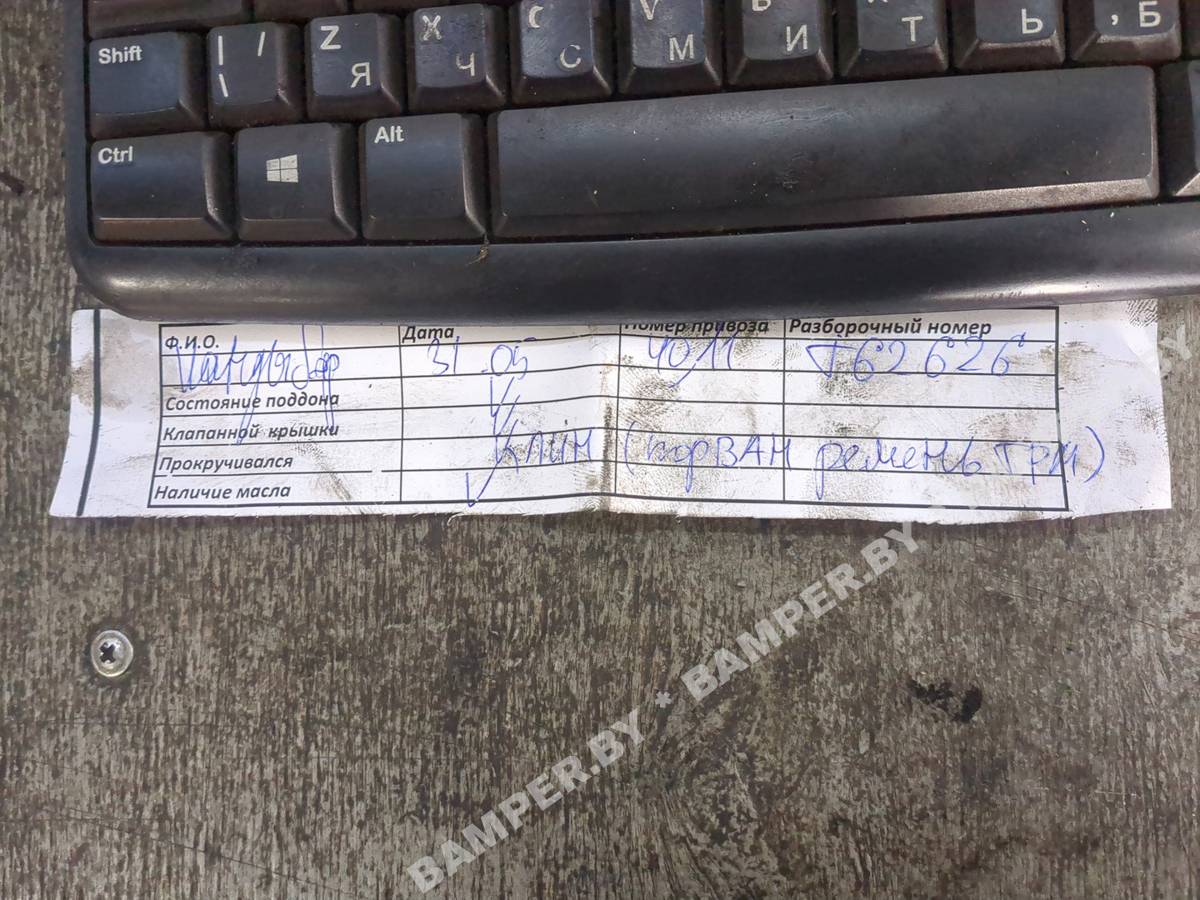 Shift | / \ Z Я X Ч C С V М И Т Ь , Б
Ctrl Alt
Ф.И.О. Дата Номер привоза Разборочный номер
31.05 4011 Т62626
Состояние поддона
Клапанной крышки
Прокручивался Клин (порван ремень ГРМ)
Наличие масла
BAMPER.BY * BAMPER.BY